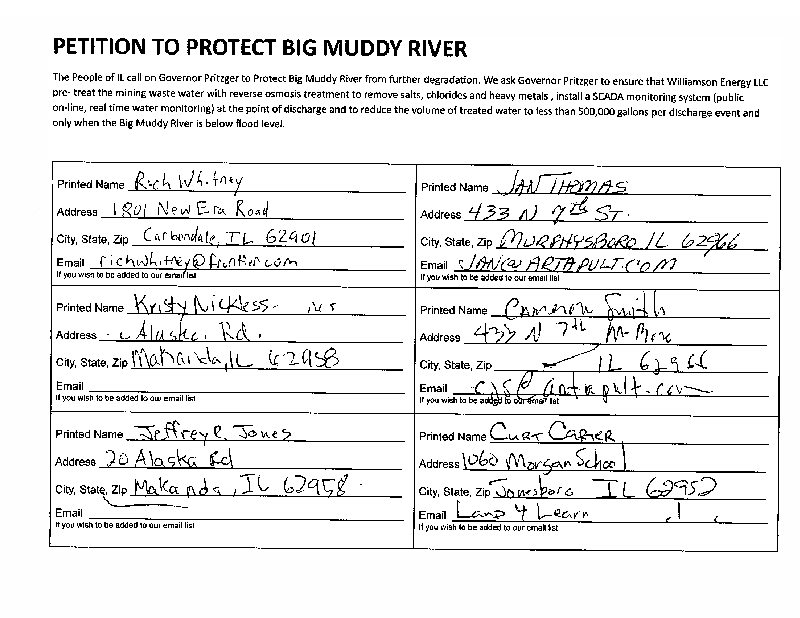 PETITION TO PROTECT BIG MUDDY RIVER
The People of IL call on Governor Pritzger to Protect Big Muddy River from further degradation. We ask Governor Pritzger to ensure that Williamson Energy LLC
pre- treat the mining waste water with reverse osmosis treatment to remove salts, chlorides and heavy metals , install a SCADA monitoring system (public
on-line, real time water monitoring) at the point of discharge and to reduce the volume of treated water to less than 500,000 gallons per discharge event and
only when the Big Muddy River is below flood level.
Printed Name Rich Whitney
Address 1801 New Era Road
City, State, Zip Carbondale, IL 62901
Email richwhitney@frontier.com
If you wish to be added to our email list
Printed Name JAN THOMAS
Address 433 N 7th ST.
City, State, Zip MURPHYSBORO IL 62966
Email JAN@ARTAPULT.COM
If you wish to be added to our email list
Printed Name Kristy Nickless
Address Alaska Rd.
City, State, Zip Makanda, IL 62958
Email
If you wish to be added to our email list
Printed Name Cameron Smith
Address 433 N 7th
City, State, Zip IL 62966
Email artapult.com
If you wish to be added to our email list
Printed Name Jeffrey R. Jones
Address 20 Alaska Rd
City, State, Zip Makanda, IL 62958
Email
If you wish to be added to our email list
Printed Name Curt Carter
Address 1060 Morgan School
City, State, Zip Jonesboro IL 62952
Email Land 4 Learn
If you wish to be added to our email list